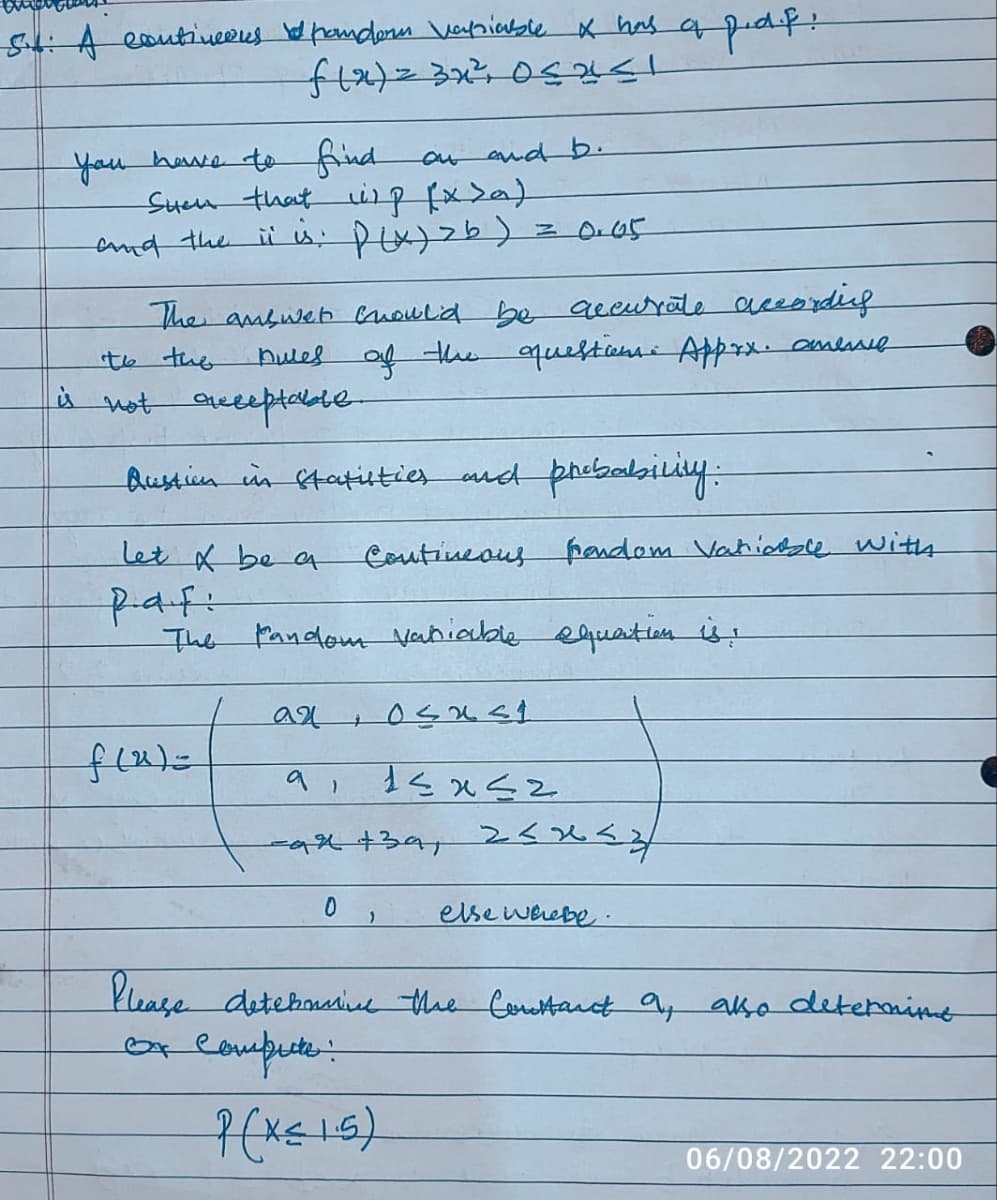 A continuous random variable x has a p.d.f:
f(x) = 3x², 0 ≤ x ≤ 1
you have to find and b.
Such that (i) P (x > a)
and the ii is: P(x) > b) = 0.05
The answer should be accurate according
to the rules of the question. Apprx.
is not acceptable.
Question in Statistics and probability:
Let X be a continuous random Variable with
p.d.f:
The random variable equation is:
ax , 0 ≤ x ≤ 1
f(x) =
a , 1 ≤ x ≤ 2
-ax + 3a, 2 ≤ x ≤ 3
0 , elsewhere.
Please determine the Constant a, also determine
or Compute:
P(X ≤ 1.5)
06/08/2022 22:00